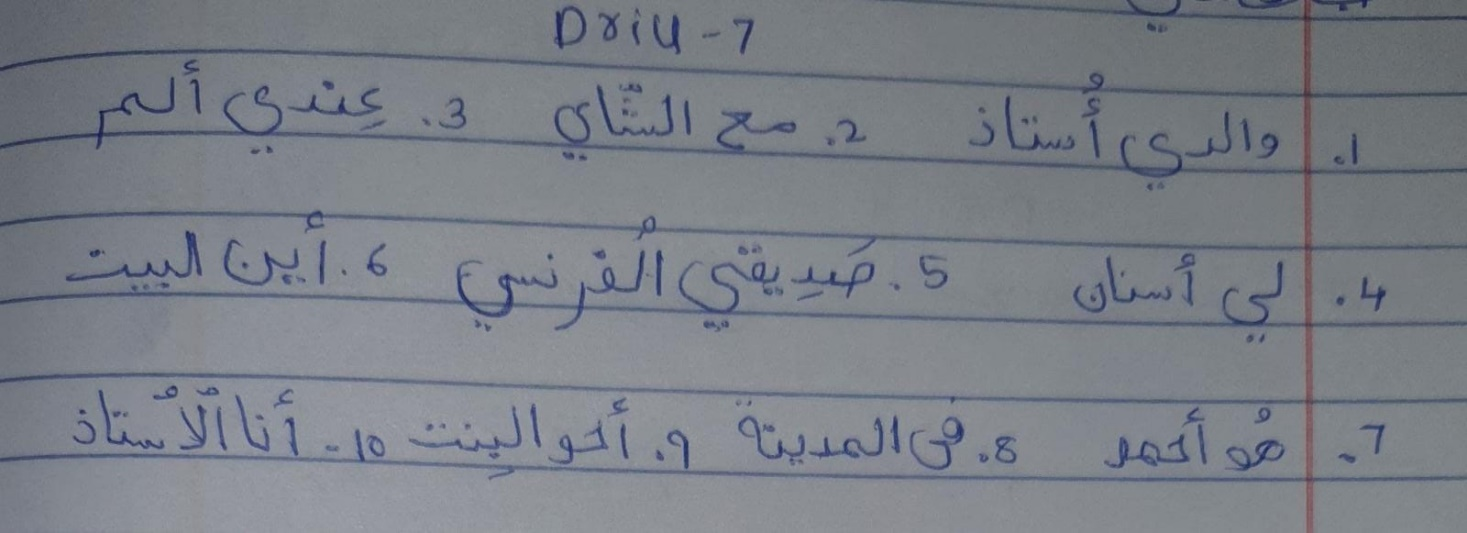 Drill - 7
1. والدي أُستاذ 2. مع الشّاي 3. عِندي ألم
4. لي أسنان 5. صَدِيقي الفُرنسي 6. أين البيت
7. هُو أحمد 8. في المدينة 9. أخو البِنت 10. أنا الأُستاذ